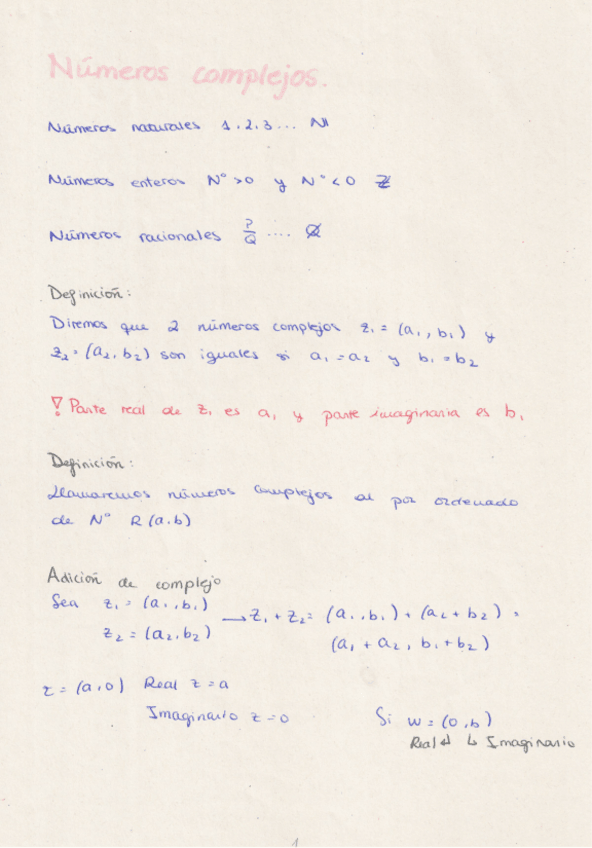 Números complejos.
Números naturales 1, 2, 3 ... ℕ
Números enteros Nº >0 y Nº <0 ℤ
Números racionales P/Q .... ℚ
Definición:
Diremos que 2 números complejos z₁ = (a₁, b₁) y
z₂ = (a₂, b₂) son iguales si a₁ = a₂ y b₁ = b₂
Parte real de z₁ es a₁ y parte imaginaria es b₁
Definición:
Llamaremos números complejos al par ordenado
de Nº R (a,b)
Adición de complejo
Sea z₁ = (a₁, b₁)
z₂ = (a₂, b₂)
→ z₁ + z₂ = (a₁, b₁) + (a₂ + b₂) =
(a₁ + a₂, b₁ + b₂)
z = (a,0) Real z = a
Imaginario z = 0
Si w = (0,b)
Real ↵ ↳ Imaginario
1